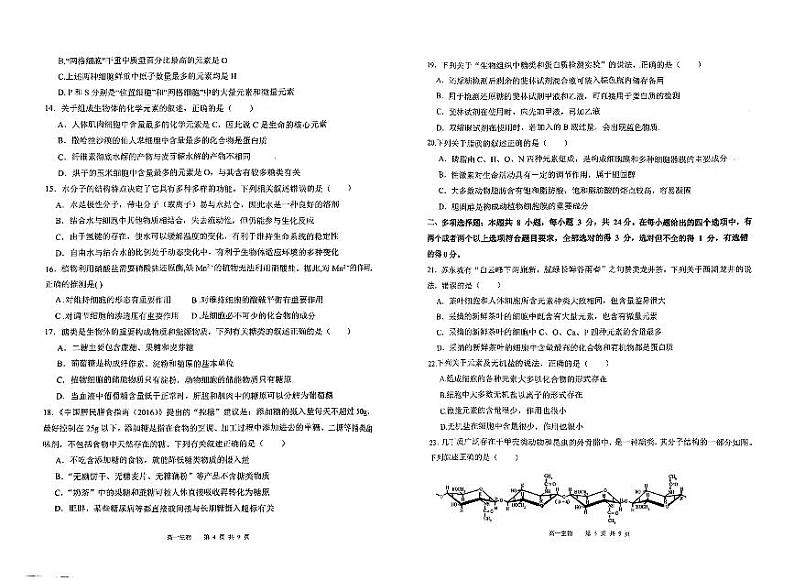 B."网格细胞"干重中质量百分比最高的元素是 O
C.上述两种细胞鲜重中原子数量最多的元素均是 H
D. P 和 S 分别是"位置细胞"和"网格细胞"中的大量元素和微量元素
14. 关于组成生物体的化学元素的叙述，正确的是（ ）
A. 人体肌肉细胞中含量最多的化学元素是 C，因此说 C 是生命的核心元素
B. 撒哈拉沙漠的仙人掌细胞中含量最多的化合物是蛋白质
C. 纤维素彻底水解的产物与麦芽糖水解的产物不相同
D. 烘干的玉米细胞中含量最多的元素是 O，与其含有较多糖类有关
15. 水分子的结构特点决定了它具有多种多样的功能。下列相关叙述错误的是（ ）
A. 水是极性分子，带电分子（或离子）易与水结合，因此水是一种良好的溶剂
B. 结合水与细胞中其他物质相结合，失去流动性，但仍能参与生化反应
C. 由于氢键的存在，使水可以缓解温度的变化，有利于维持生命系统的稳定性
D. 自由水与结合水的比例处于动态变化中，有利于生物体适应环境的多种变化
16. 植物利用硝酸盐需要硝酸盐还原酶,缺 Mn²⁺的植物无法利用硝酸盐。据此,对 Mn²⁺的作用,
正确的推测是( )
A .对维持细胞的形态有重要作用 B .对维持细胞的酸碱平衡有重要作用
C .对调节细胞的渗透压有重要作用 D .是细胞必不可少的化合物的成分
17. 糖类是生物体的重要构成物质和能源物质，下列有关糖类的叙述正确的是（ ）
A. 二糖主要包含蔗糖、果糖和麦芽糖
B. 葡萄糖是构成纤维素、淀粉和糖原的基本单位
C. 植物细胞的储能物质只有淀粉，动物细胞的储能物质只有糖原
D. 当血液中葡萄糖含量低于正常时，肝脏和肌肉中的糖原可以分解为葡萄糖
18.《中国居民膳食指南（2016）》提出的"控糖"建议是：添加糖的摄入量每天不超过 50g,
最好控制在 25g 以下，添加糖是指在食物的烹调、加工过程中添加进去的单糖、二糖等糖类甜
味剂，不包括食物中天然存在的糖。下列有关叙述正确的是（ ）
A. 不吃含添加糖的食物，就能降低糖类物质的摄入量
B. "无糖饼干、无糖麦片、无糖藕粉"等产品不含糖类物质
C. "奶茶"中的果糖和蔗糖可经人体直接吸收再转化为糖原
D. 肥胖、某些糖尿病等都直接或间接与长期糖摄入超标有关
高一生物 第 4 页 共 9 页
19. 下列关于"生物组织中糖类和蛋白质检测实验"的说法，正确的是（ ）
A. 还原糖检测后剩余的斐林试剂混合液可装入棕色瓶内储存备用
B. 用于检测还原糖的斐林试剂甲液和乙液，可直接用于蛋白质的检测
C. 斐林试剂在使用时，应先加甲液，再加乙液
D. 双缩脲试剂在使用时，若加入的 B 液过量，会出现蓝色物质
20.下列关于脂质的叙述正确的是（ ）
A. 磷脂由 C、H、O、N 四种元素组成，是构成细胞膜和多种细胞器膜的重要成分
B. 性激素对生命活动具有一定的调节作用，属于胆固醇
C. 大多数动物脂肪含有饱和脂肪酸，饱和脂肪酸的熔点较高，容易凝固
D. 胆固醇是构成植物细胞膜的重要成分
二、多项选择题：本题共 8 小题，每小题 3 分，共 24 分。在每小题给出的四个选项中，有
两个或者两个以上选项符合题目要求，全部选对的得 3 分，选对但不全的得 1 分，有选错
的得 0 分。
21. 苏东坡有"白云峰下两旗新，腻绿长鲜谷雨春"之句赞美龙井茶，下列关于西湖龙井的说
法，错误的是（ ）
A. 茶叶细胞和人体细胞所含元素种类大致相同，但含量差异很大
B. 采摘的新鲜茶叶的细胞中既含有大量元素，也含有微量元素
C. 采摘的新鲜茶叶的细胞中 C、O、Ca、P 四种元素的含量最多
D. 采摘的新鲜茶叶的细胞中含量最高的化合物和有机物都是蛋白质
22.下列关于元素及无机盐的说法，正确的是（ ）
A.组成细胞的各种元素大多以化合物的形式存在
B.细胞中大多数无机盐以离子的形式存在
C.微量元素的含量很少，作用也很小
D.无机盐在细胞中含量很少，作用也很小
23. 几丁质广泛存在于甲壳类动物和昆虫的外骨骼中，是一种糖类，其分子结构的一部分如图。
下列叙述正确的是（ ）
高一生物 第 5 页 共 9 页